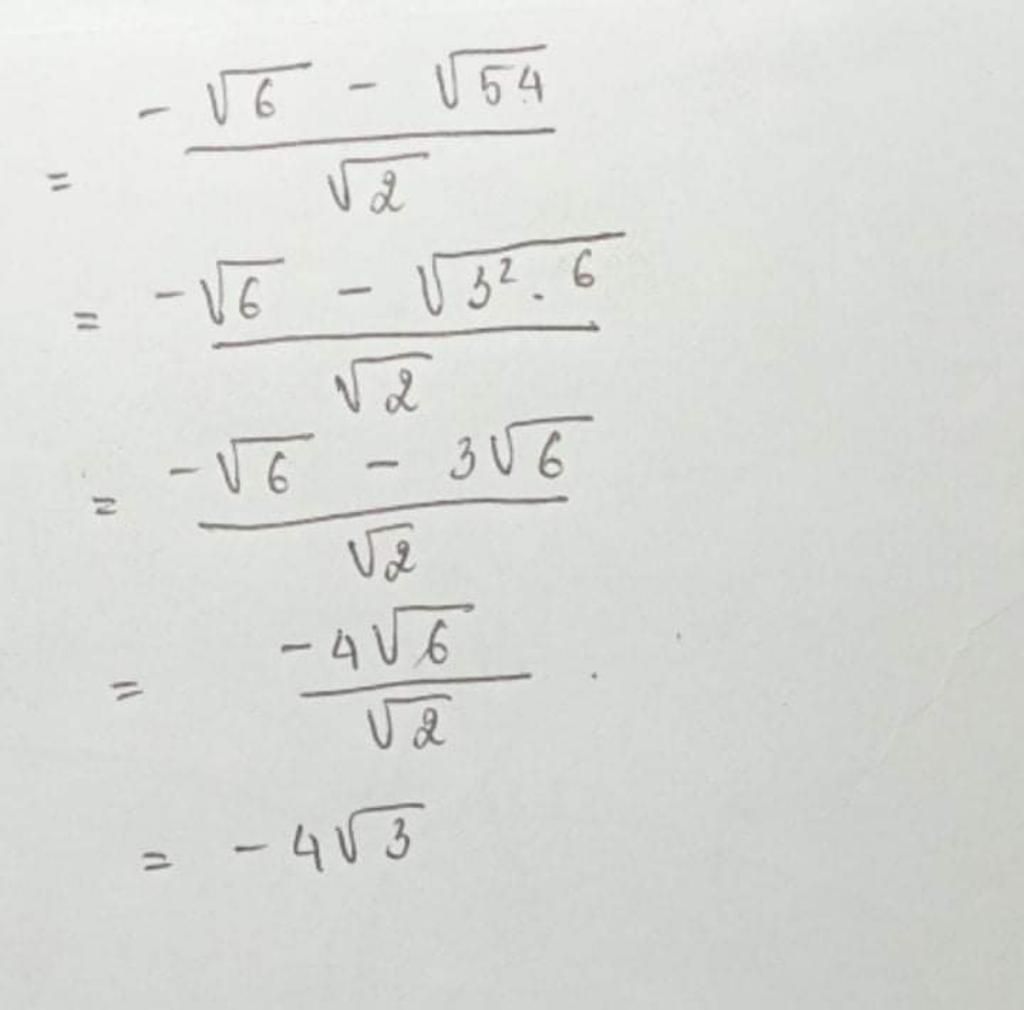 = (-√6 - √54) / √2
= (-√6 - √(3² . 6)) / √2
= (-√6 - 3√6) / √2
= (-4√6) / √2
= -4√3